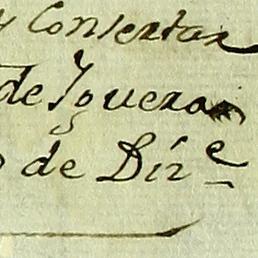 y Consertar
de Ygueras
de Dizᵉ